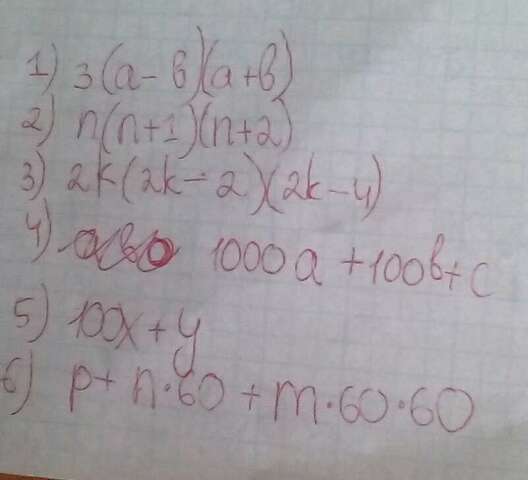 1) 3(a-b)(a+b)
2) n(n+1)(n+2)
3) 2k(2k-2)(2k-4)
4) 1000a+100b+c
5) 100x+y
6) p+n·60+m·60·60